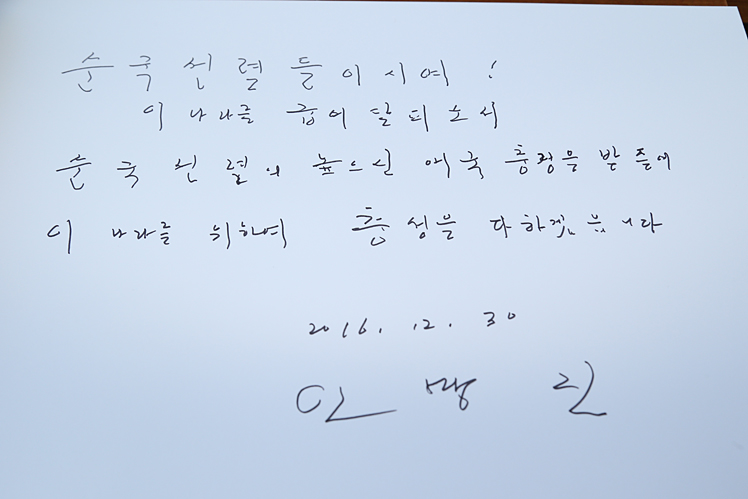 순국선열들이시여!
이 나라를 굽어 살피소서
순국선열의 높으신 애국 충정을 받들어
이 나라를 위하여 충성을 다하겠습니다
2016. 12. 30
인 명 진